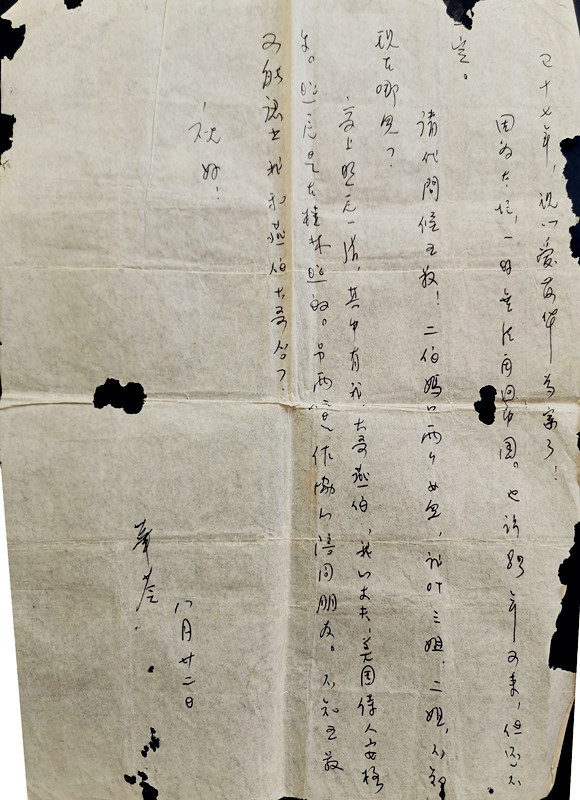 已十七年，视以爱荷华为家了！
因为太忙，一时无法再回中国。也许明年可来，但还不
一定。
请代问候王！二伯妈的两个女儿，叶三姐，二姐，不知
现在哪儿？
寄上照片一张，其中有我大哥燕伯，我的丈夫，美国诗人安格
尔。照片是在桂林照的。另两位是作协的陪同朋友。不知王
可能认出我和燕伯大哥么？
祝
好！
华苓
八月廿二日